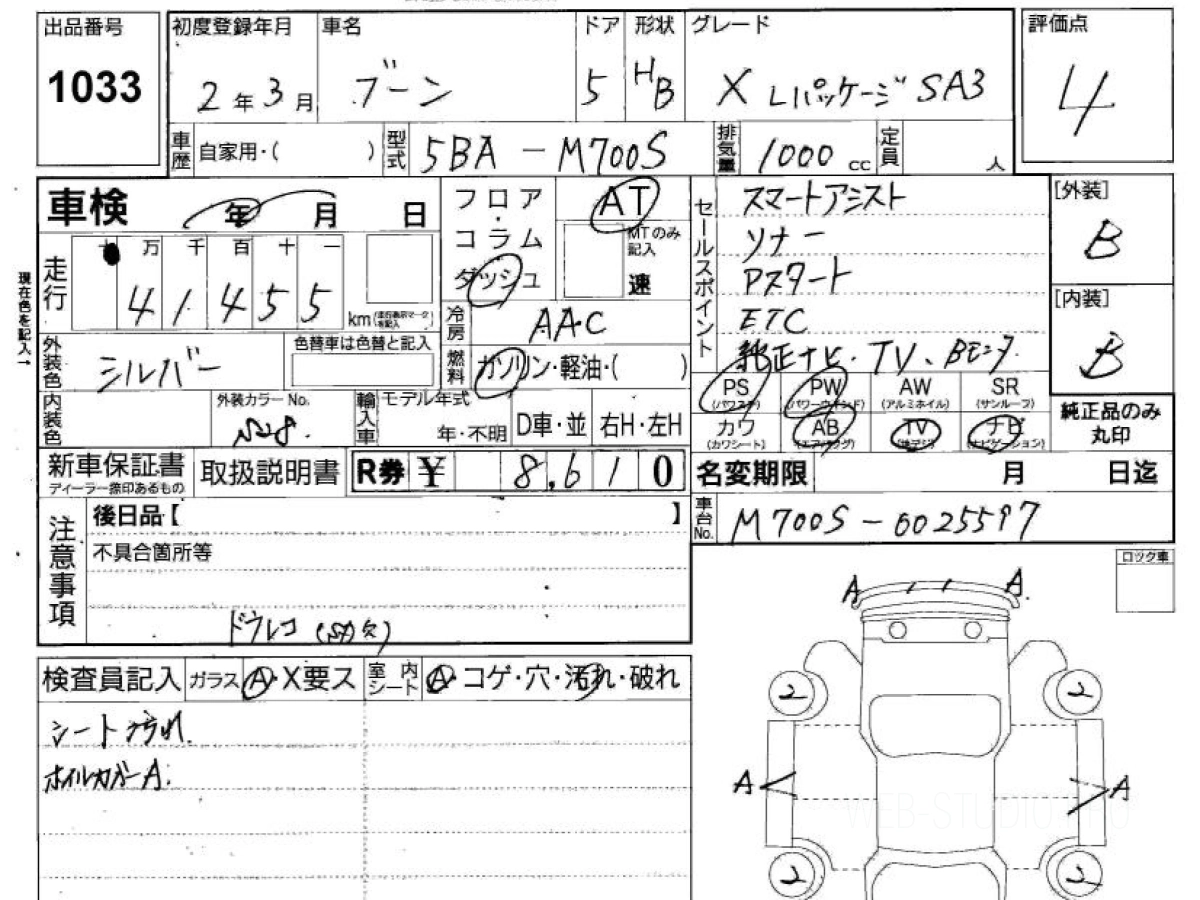 出品番号
1033
初度登録年月
2年3月
車名
ブーン
ドア
5
形状
HB
グレード
X Lパッケージ SA3
評価点
4
車歴
自家用・( )
型式
5BA-M700S
排気量
1000 cc
定員
人
車検
年 月 日
フロア・コラム
ダッシュ
AT
MTのみ記入
速
セールスポイント
スマートアシスト
ソナー
Pスタート
ETC
純正ナビ・TV、Bモニタ
[外装]
B
[内装]
B
現在色を記入→
走行
十 万 千 百 十 一
4 1 4 5 5
km
冷房
AAC
外装色
シルバー
色替車は色替と記入
燃料
ガソリン・軽油・( )
PS
(パワステ)
PW
(パワーウインド)
AW
(アルミホイル)
SR
(サンルーフ)
カワ
(カワシート)
AB
(エアバッグ)
TV
(地デジ)
ナビ
(ナビゲーション)
純正品のみ
丸印
内装色
外装カラーNo.
S28.
輸入車
モデル年式
年・不明
D車・並
右H・左H
新車保証書
ディーラー捺印あるもの
取扱説明書
R券
¥ 8,610
名変期限
月 日迄
注意事項
後日品【 】
不具合箇所等
ドラレコ
車台No.
M700S-0025597
ロック車
A
A
検査員記入
ガラス
A・X要ス
室内シート
A・コゲ・穴・汚れ・破れ
シート汚れ.
ホイルカバーA.
2
2
A
A
2
2
WEB-STUDIO.PRO